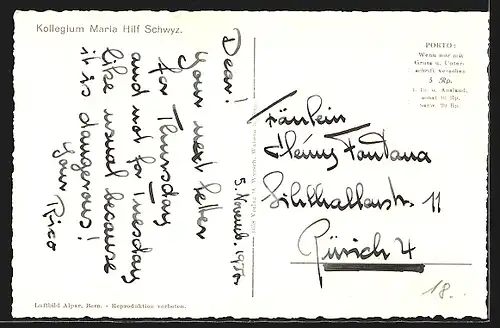 Kollegium Maria Hilf Schwyz.
Dear!
Your next letter
for Thursday
and not for Tuesday
like usual because
it is dangerous!
Your Rico
5. Novemb.
PORTO:
Wenn nur mit
Gruss u. Unter-
schrift versehen
5 Rp.
Fräulein
Fontana
11
Zürich 4
18.-
Luftbild Alpar, Bern. - Reproduktion verboten.